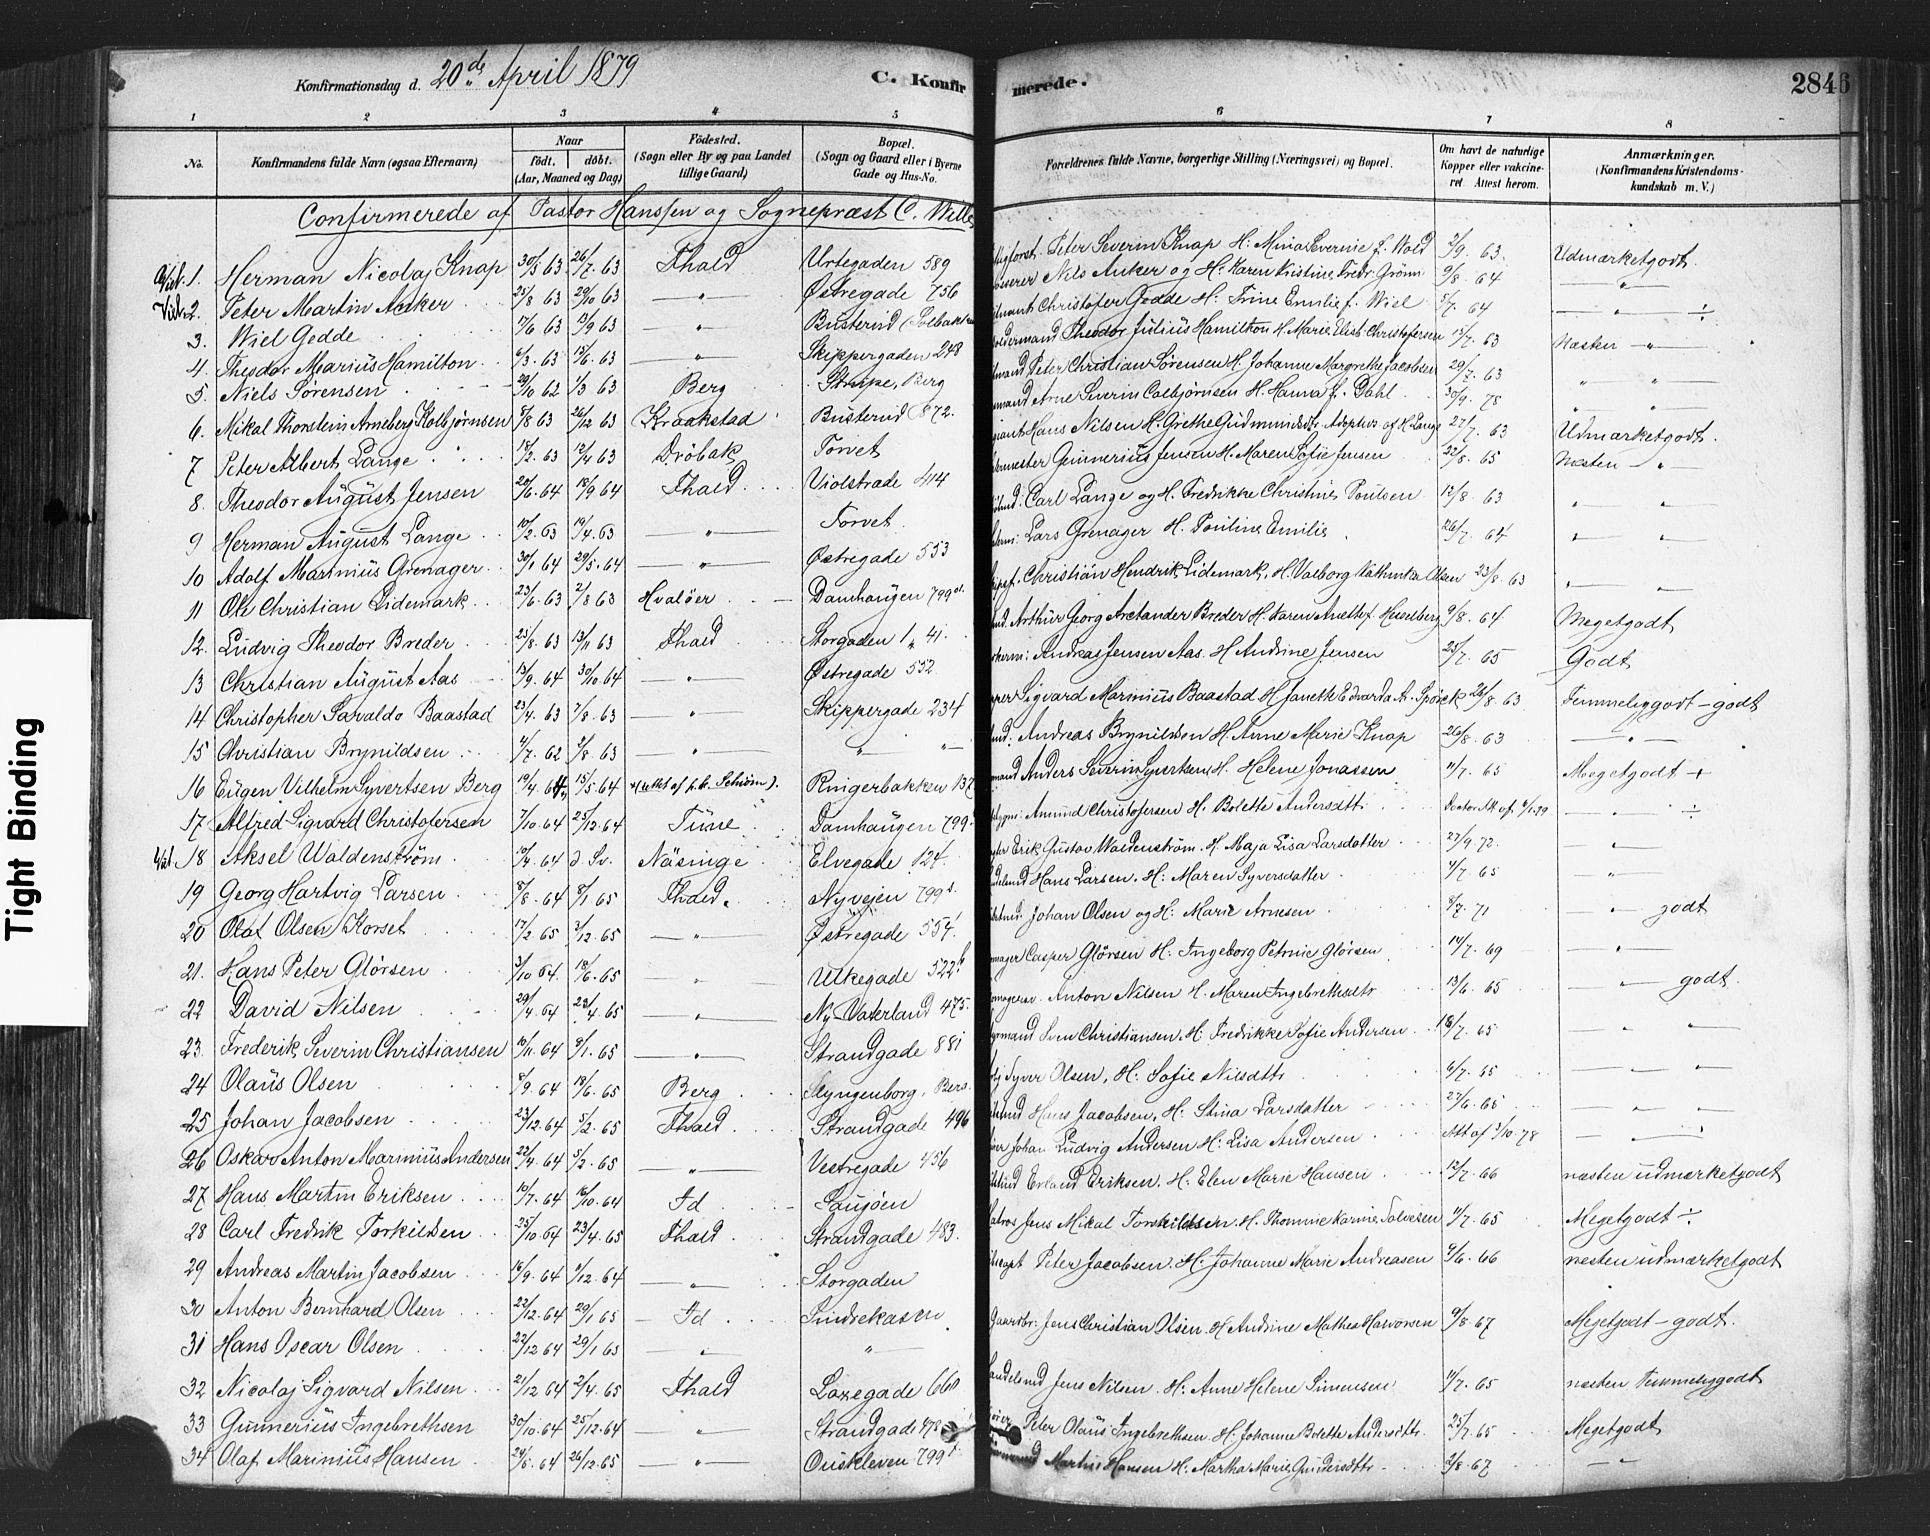 Konfirmationsdag d. 20de April 1879
C. Konfirmerede.
2846
1 2 3 4 5 6 7 8
No. Konfirmandens fulde Navn (ogsaa Efternavn) Naar født. døbt. (Aar, Maaned og Dag) Fødested. (Sogn eller By og paa Landet tillige Gaard) Bopæl. (Sogn og Gaard eller i Byerne Gade og Hus-No. Forældrenes fulde Navne, borgerlige Stilling (Næringsvei) og Bopæl. Om havt de naturlige Kopper eller vakcineret. Attest herom. Anmærkninger. (Konfirmandens Kristendomskundskab m. V.)
Confirmerede af Pastor Hanssen og Sognepræst C. Wille
1. Herman Nicolaj Knap 30/5 63 26/7 63 Fhald Urtegaden 589 Peter Severin Knap H: Mina Severine f. Wold 2/9 63. Udmærketgodt.
2. Peter Martin Anker 25/8 63 29/10 63 — " — Østregade 756 Nils Anker og H: Karen Kristine Fredr. Grønn 9/8 64 — " —
3. Wiel Gedde 17/6 63 13/9 63 — " — Busterud Christofer Gedde H: Trine Emilie f. Wiel 5/7 64 — " — ÷
4. Theodor Marius Hamilton 6/3 63 15/6 63 " Skippergaden 248 Theodor Julius Hamilton H. Marie Elisb. Christofersen 15/7 63 Næsten — " —
5. Niels Sørensen 29/10 62 1/3 63 Berg Strupe, Berg Peter Christian Sørensen H. Johanne Margrethe Jacobsen 29/7 63 " "
6. Mikal Thorstein Arneberg Kolbjørnsen 5/8 63 26/12 63 Kraakstad Busterud 872. Arne Severin Colbjørnsen H. Hanna f. Dahl 30/9 78 " "
7 Peter Albert Lange 18/2 63 12/4 63 Drøbak Torvet Hans Nilsen H. Grethe Gudmundsdtr Adoptivs. af H. Lange 27/7 63 Udmærketgodt.
8. Theodor August Jensen 20/6 64 18/9 64 Fhald Violstrade 414 Ginnerius Jensen H. Maren Sofie Jensen 22/8 65 Næsten — " —
9 Herman August Lange 10/2 63 19/4 63 — " — Torvet. Carl Lange og H. Fredrikke Christine Poulsen 12/8 63 " "
10 Adolf Marinius Grenager 30/1 64 29/5 64 — " — Østregade 553 Lars Grenager H. Pouline Emilie 26/7 64 " "
11 Ole Christian Lidemark 23/6 63 2/8 63 Hvaløer Damhaugen 799 Christian Hendrik Lidemark, H. Valborg Kathinka Olsen 23/8 63 " "
12. Ludvig Theodor Breder 25/8 63 13/11 63 Fhald Storgaden 1, 41. Arthur Georg Aretander Breder H. Karen Anette f. Hesselberg 9/8 64 Megetgodt
13 Christian August Aas 13/9 64 30/10 64 — " — Østregade 552 Andreas Jensen Aas. H Andrine Jensen 25/7 65 Godt
14 Christopher Savaldo Baastad 23/4 63 7/8 63 — " — Skippergade 234 Sigvard Marinius Baastad H. Janette Edvarda A. Spørck 26/8 63 Temmeliggodt — godt
15 Christian Brynildsen 4/7 62 2/8 63 — " — " " — Andreas Brynildsen H. Anne Marie Knap 26/8 63 — " —
16 Eugen Vilhelm Syvertsen Berg 19/4 64 15/5 64 Ringerbakken 137 Anders Severin Syvertsen H. Helene Jonassen 11/7 65 Megetgodt ÷
17 Alfred Sigvard Christofersen 7/10 64 25/12 64 Tune Damhaugen 799 Amund Christofersen H. Bolette Andersdtr — " — ÷
18 Aksel Waldenstrøm 10/4 64 d. Sv. Näsinge Elvegade 124. Erik Gustav Waldenstrøm. H. Maja Lisa Larsdatter 27/9 72. "
19 Georg Hartvig Larsen 8/8 64 8/1 65 Fhald. Nyvejen 799 Hans Larsen. H: Maren Syversdatter 4/7 65 "
20 Olaf Olsen Korset 17/2 65 3/12 65 — " — Østregade 554. Johan Olsen og H: Marie Arnesen 8/7 71 — " — godt
21. Hans Peter Glørsen 3/10 64. 18/6 65 " Ulkegade 522 Casper Glørsen H: Ingeborg Petrine Glørsen 14/7 69 — " —
22 David Nilsen 29/4 64 23/4 65 — " — Ny Vaterland 475. Anton Nilsen H. Maren Ingebrethsdtr 13/6 65 — " — godt.
23. Frederik Severin Christiansen 10/11 64 8/1 65 — " — Strandgade 881 Sven Christiansen. H. Fredrikke Sofie Andersen 18/7 65 — " — "
24 Olaus Olsen 8/9 64 18/6 65 Berg Slyngenborg, Berg Syver Olsen, H. Sofie Nilsdtr 6/7 65 — " — "
25 Johan Jacobsen 23/12 64 5/2 65 Fhald Strandgade 496 Hans Jacobsen, H. Stina Larsdatter 27/6 65 — " — "
26 Oskar Anton Marinius Andersen 22/4 64 5/2 65 — " — Vestregade 456 Johan Ludvig Andersen H. Lisa Andersen Att af 3/10 78 — " — ÷
27 Hans Martin Eriksen 10/7 64 16/10 64 Id Saugøen Erland Eriksen. H: Elen Marie Hansen 12/7 66 næsten udmærketgodt
28 Carl Fredrik Torkildsen 25/10 64 23/4 65 Fhald Strandgade 483. Jens Mikal Torkildsen. H. Thomine Karine Salvesen 11/7 65 Megetgodt ÷
29 Andreas Martin Jacobsen 16/9 64 4/12 64 — " — Storgaden Peter Jacobsen. H. Johanne Marie Andreasen 9/6 66 næsten udmærketgodt
30 Anton Bernhard Olsen 22/12 64 29/1 65 — Id Sindrekasen Gaardbr: Jens Christian Olsen. H Andrine Mathea Halvorsen 9/8 67 Megetgodt — godt.
31 Hans Oscar Olsen 22/12 64 29/1 65 — " — — " —
32 Nicolaj Sigvard Nilsen 21/12 64 2/4 65 Fhald Løxegade 660 Jens Nilsen. H. Anne Helene Simensen 11/7 65 næsten Temmeliggodt
33 Gunnerius Ingebrethsen 30/10 64 25/12 64 — " — Strandgade 478 Peter Olaus Ingebrethsen. H. Johanne Bolette Andersdtr. 25/7 65 Megetgodt
34 Olaf Marinius Hansen 24/5 64 26/12 65 — " — Ouskleven 799 Martin Hansen H: Martha Marie Gundersdtr 2/8 67 — " —
Tight Binding